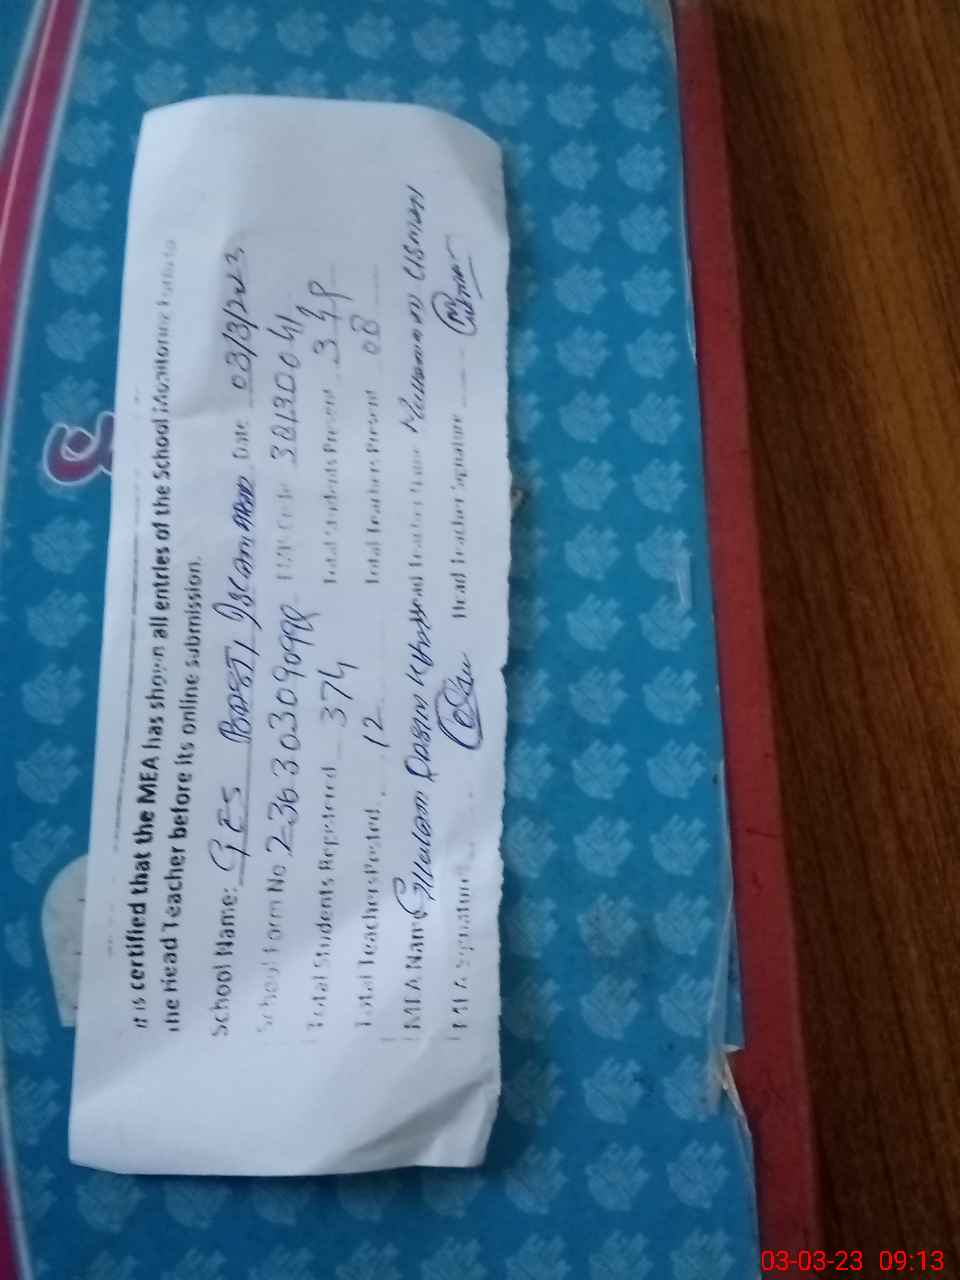 It is certified that the MEA has shown all entries of the School Monitoring Form to
the Head Teacher before its online submission.
School Name: GES Basti Islam Abad Date 03/3/2023
School Form No. Code 30130041
Total Students Registered 374 Total Students Present
Total Teachers Posted 12 Total Teachers Present 08
MEA Name Ghulam Qasim Head Teacher Name Muhammad Usman
MEA Signature Head Teacher Signature
03-03-23 09:13